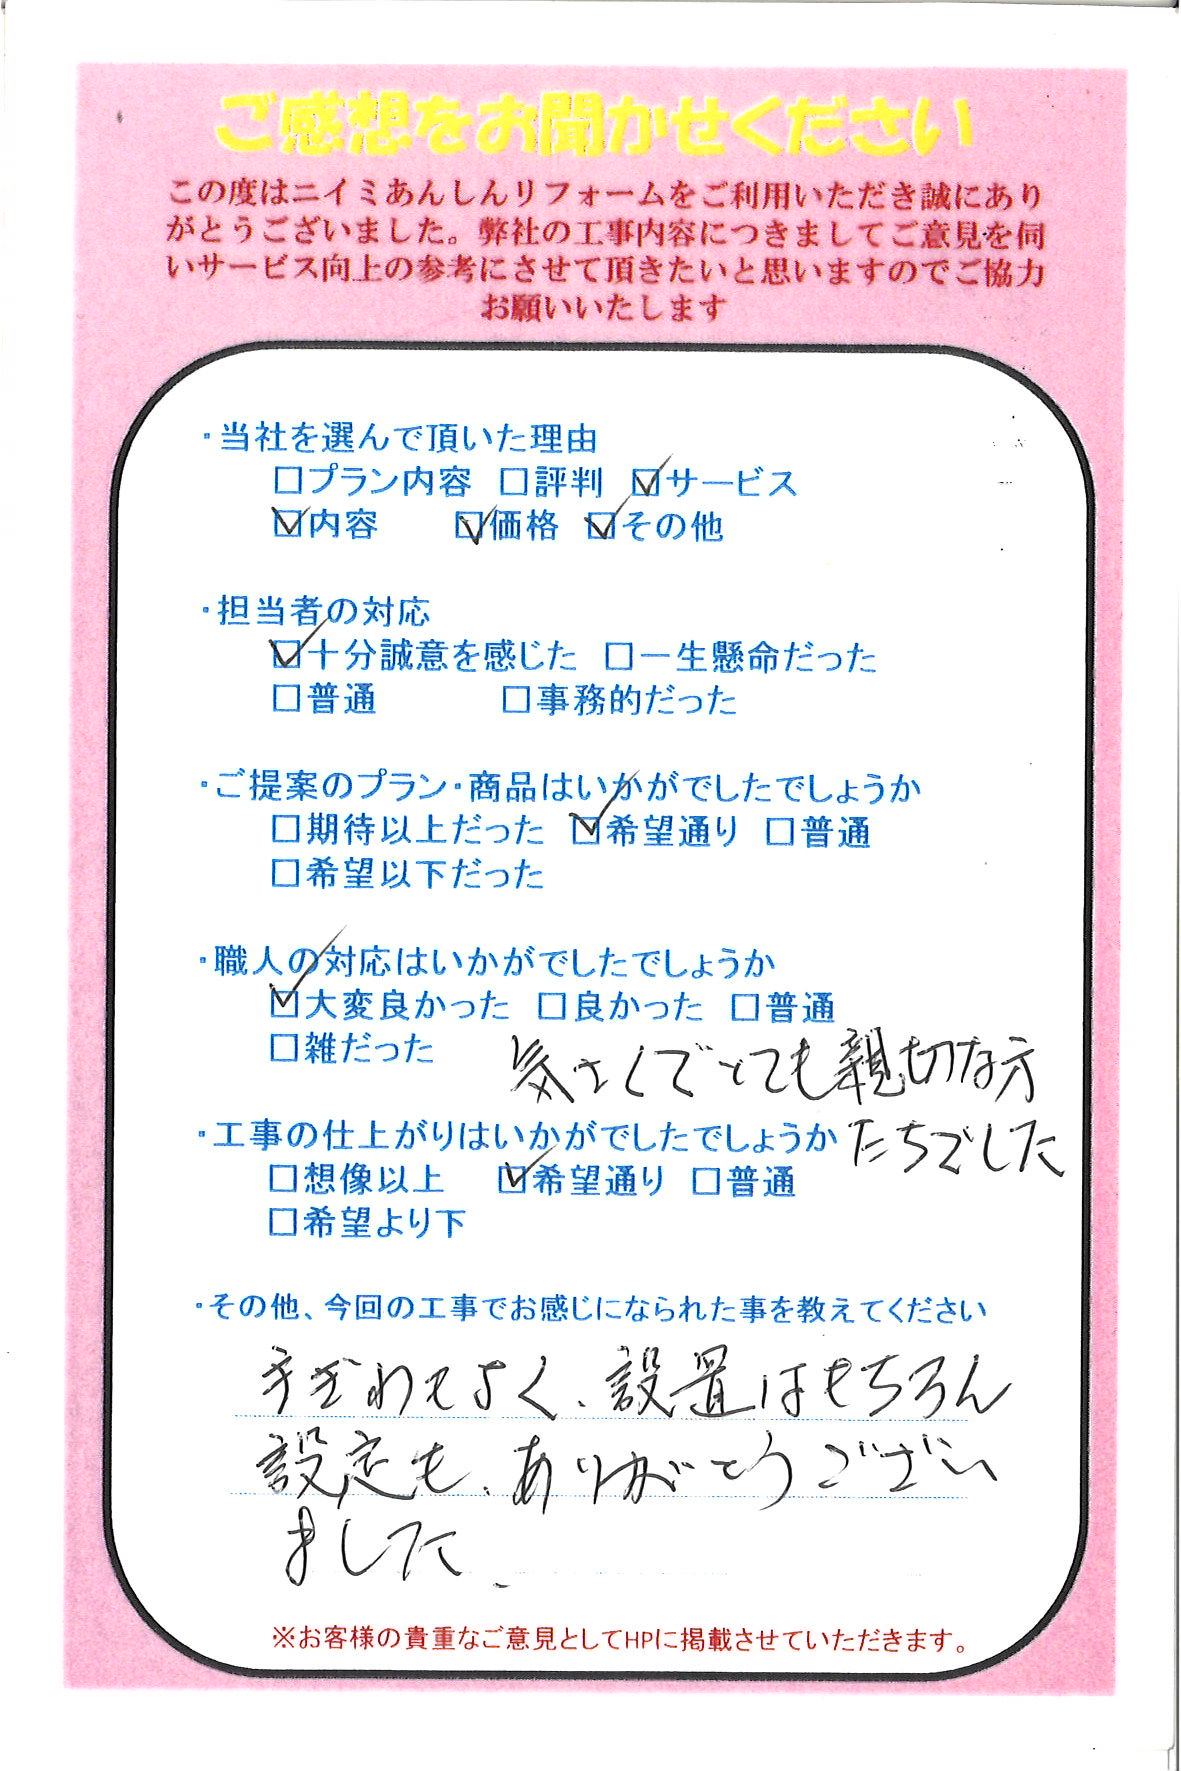 ご感想をお聞かせください
この度はニイミあんしんリフォームをご利用いただき誠にあり
がとうございました。弊社の工事内容につきましてご意見を伺
いサービス向上の参考にさせて頂きたいと思いますのでご協力
お願いいたします
・当社を選んで頂いた理由
□プラン内容 □評判 ☑サービス
☑内容 ☑価格 ☑その他
・担当者の対応
☑十分誠意を感じた □一生懸命だった
□普通 □事務的だった
・ご提案のプラン・商品はいかがでしたでしょうか
□期待以上だった ☑希望通り □普通
□希望以下だった
・職人の対応はいかがでしたでしょうか
☑大変良かった □良かった □普通
□雑だった 気さくでとても親切な方
・工事の仕上がりはいかがでしたでしょうか たちでした
□想像以上 ☑希望通り □普通
□希望より下
・その他、今回の工事でお感じになられた事を教えてください
手ぎわもよく、設置はもちろん
設定も、ありがとうござい
ました、
※お客様の貴重なご意見としてHPに掲載させていただきます。